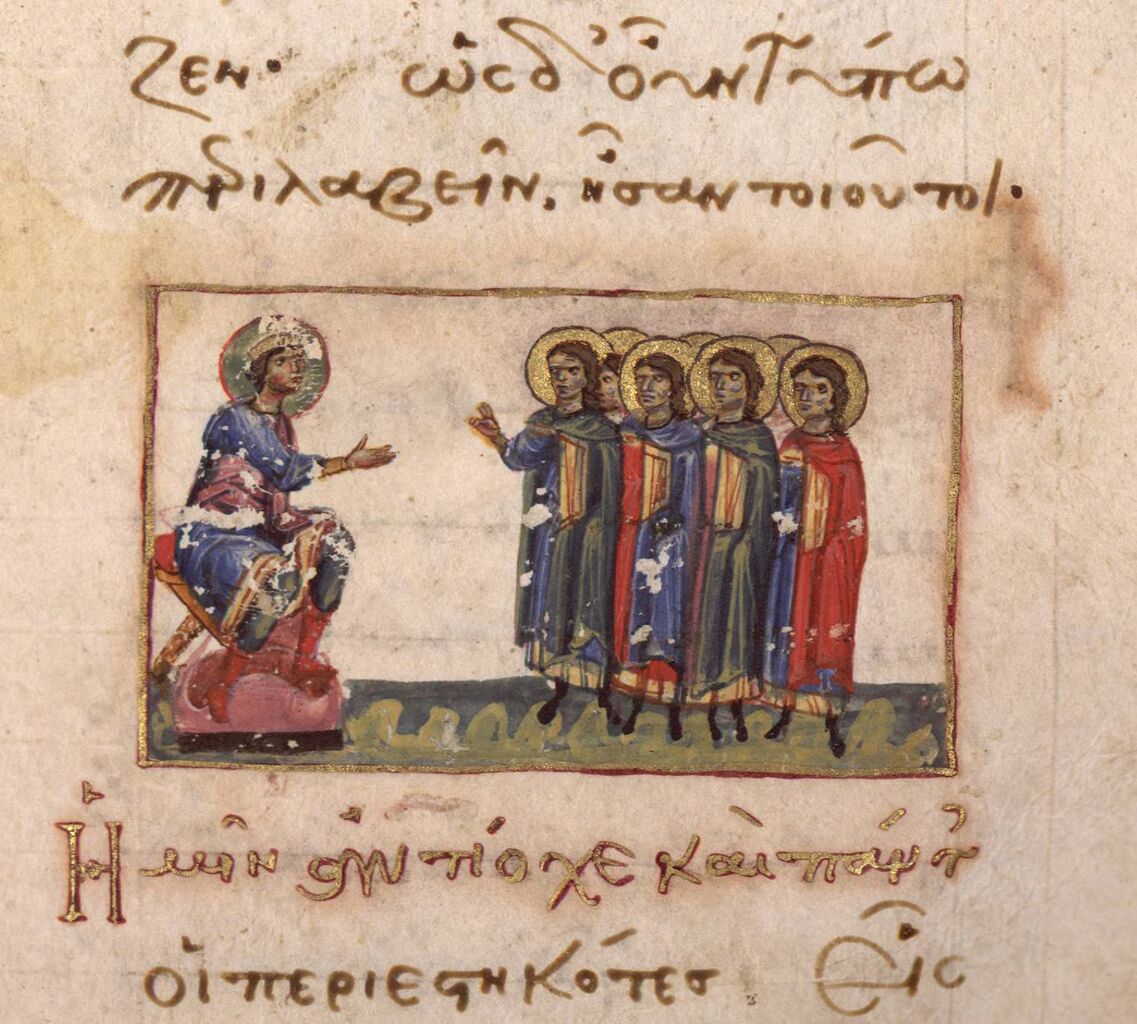 ζεν· ὡς δ' οὖν τύπω
περιλαβεῖν, ἦσαν τοιοῦτοι·
Ἡμῖν ἀντίοχε καὶ πάντες
οἱ περιεστηκότες εἷς